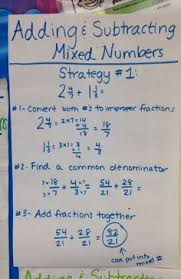 Adding & Subtracting
Mixed Numbers
Strategy #1:
2 4/7 + 1 1/3 =
#1- Convert both #'s to improper fractions
2 4/7 = 2×7=14 + 4/7 = 18/7
1 1/3 = 3×1=3 + 1/3 = 4/3
#2- Find a common denominator
3×18/3×7 + 4×7/3×7 = 54/21 + 28/21
#3- Add fractions together
54/21 + 28/21 = 82/21
can put into mixed #
Adding & Subtracting